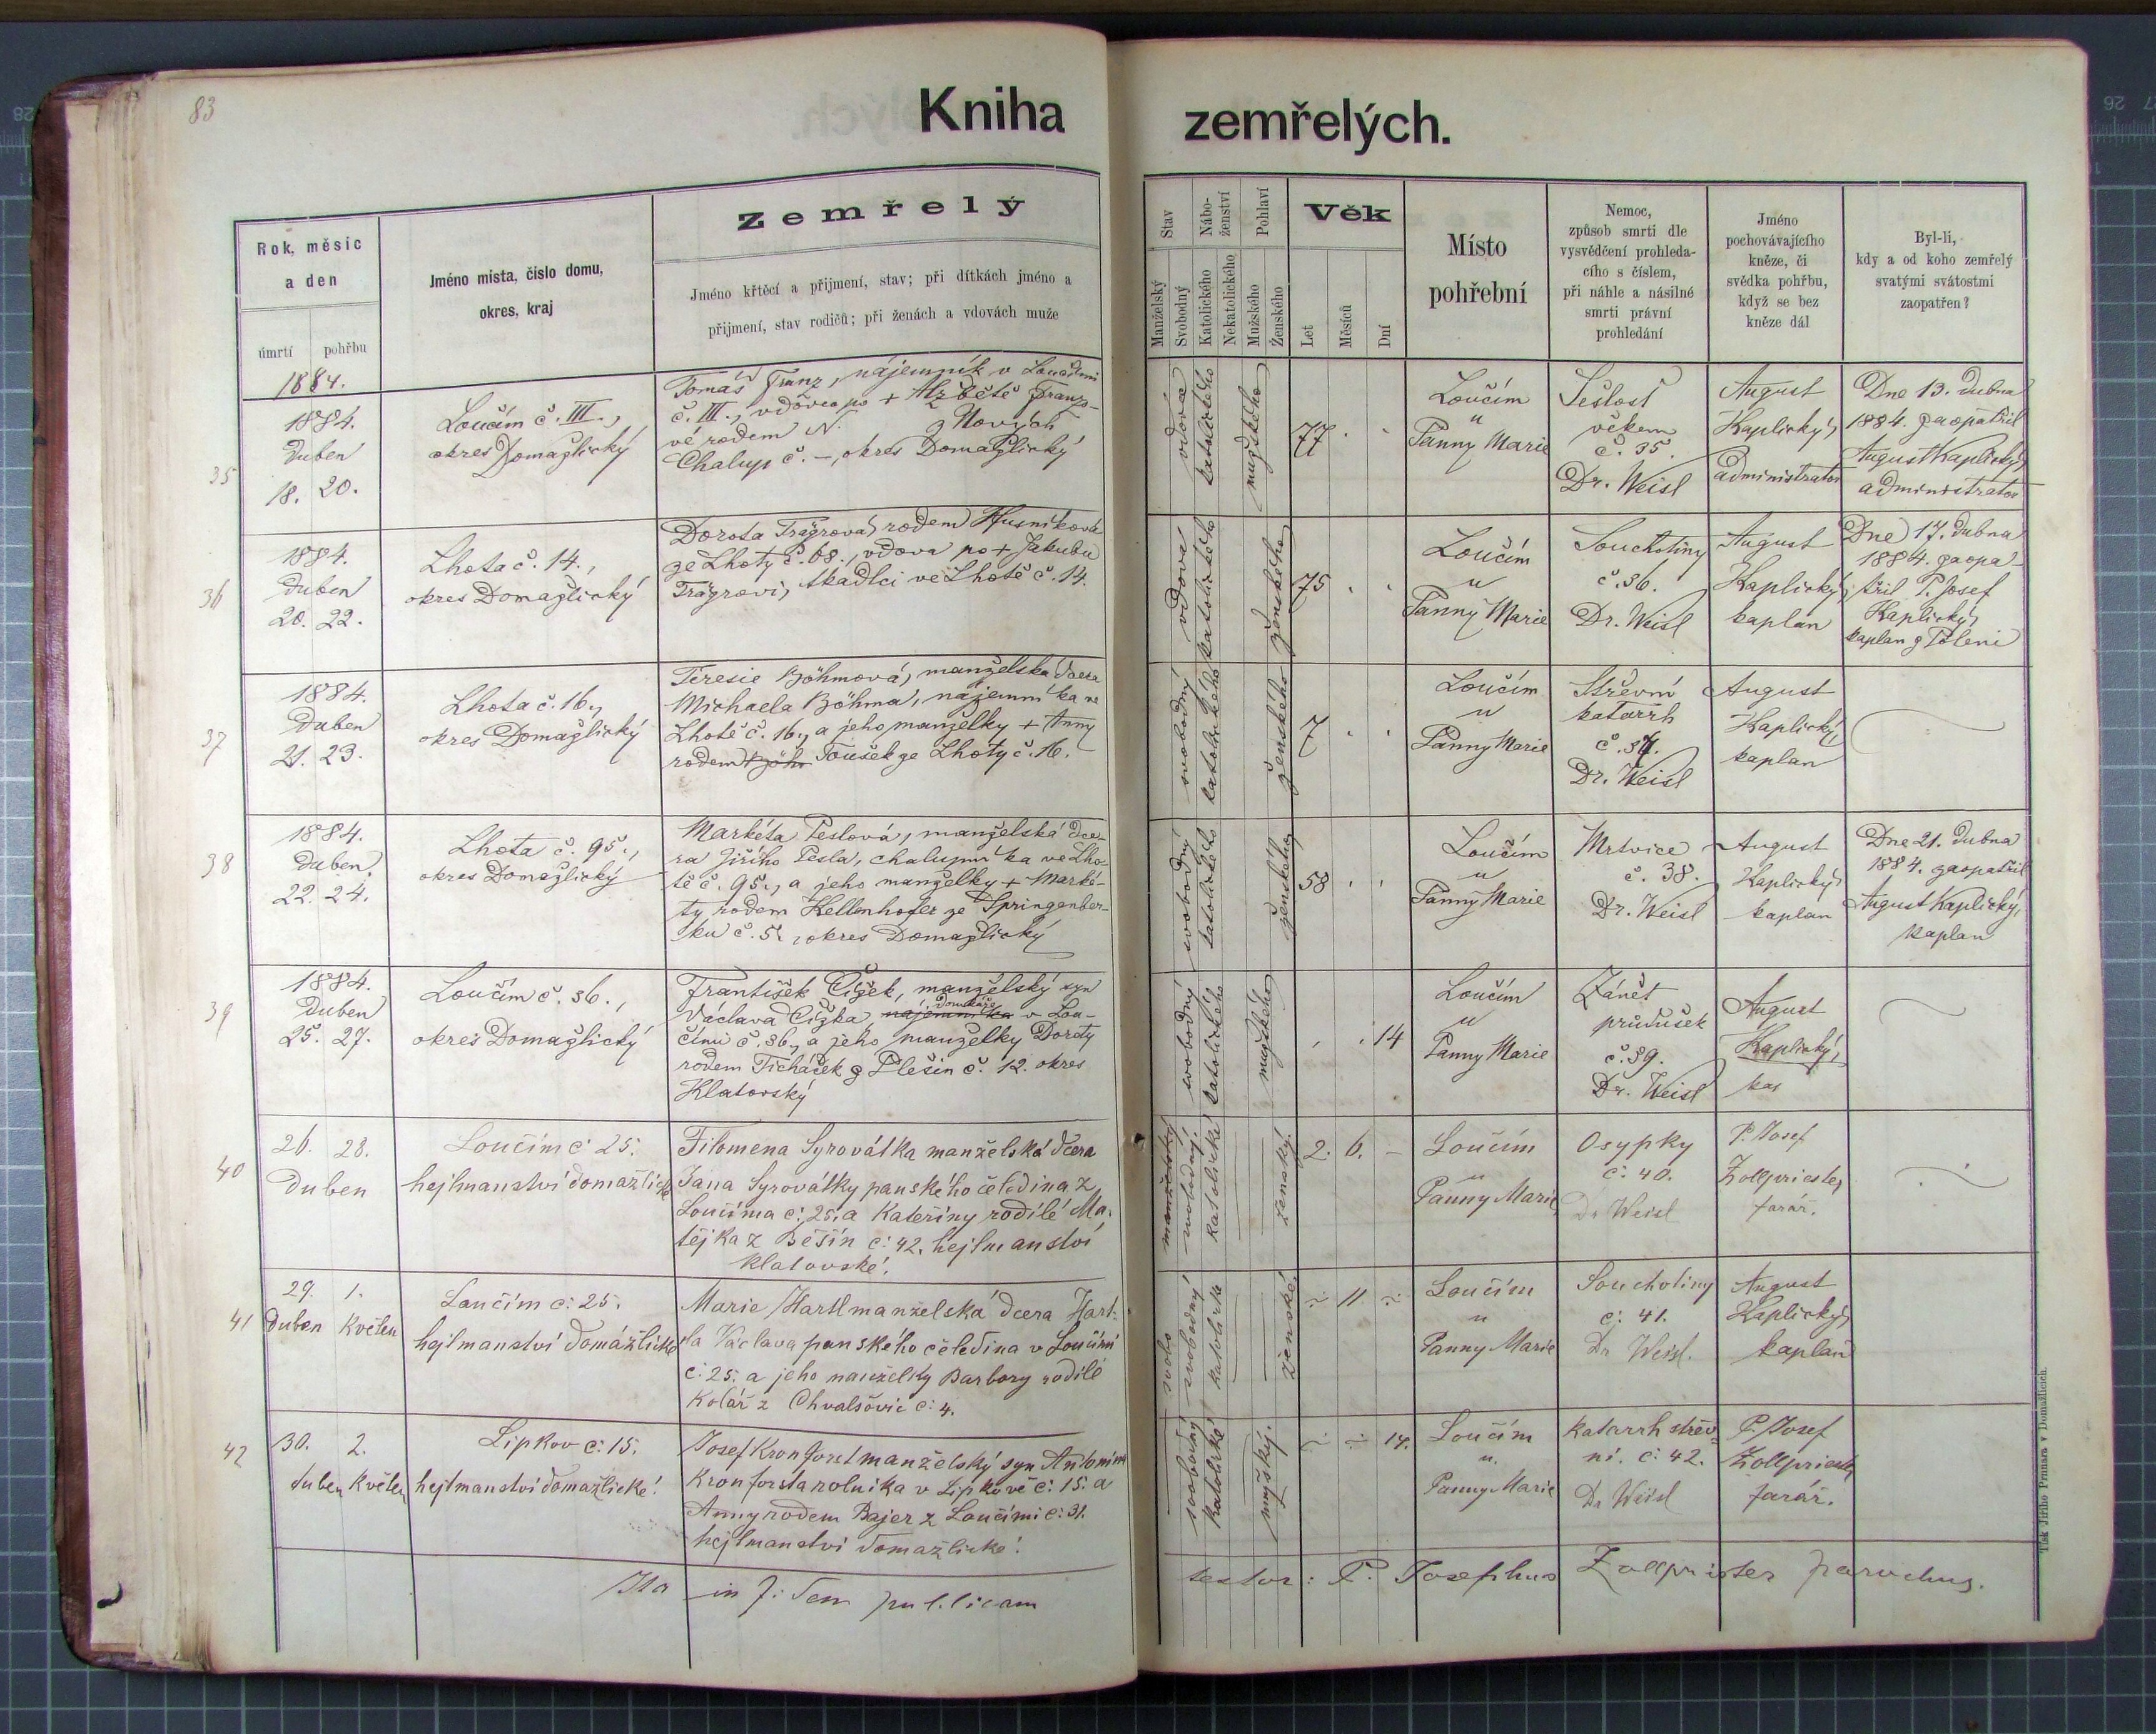 83
Kniha zemřelých.
Rok, měsíc
a den
úmrtí pohřbu
Jméno místa, číslo domu,
okres, kraj
zemřelý
Jméno křtěcí a přijmení, stav; při dítkách jméno a
přijmení, stav rodičů; při ženách a vdovách muže
Stav
Manželský
Svobodný
Nábo-
ženství
Katolického
Nekatolického
Pohlaví
Mužského
Ženského
Věk
Let
Měsíců
Dní
Místo
pohřební
Nemoc,
způsob smrti dle
vysvědčení prohleda-
cího s číslem,
při náhle a násilné
smrti právní
prohledání
Jméno
pochovávajícího
kněze, či
svědka pohřbu,
když se bez
kněze dál
Byl-li,
kdy a od koho zemřelý
svatými svátostmi
zaopatřen?
1884.
35
1884.
Duben
18. 20.
Loučím č. III.,
okres Domažlický
Tomáš Franz, nájemník v Loučimi
č. III., vdovec po + Alžbětě Franzo-
vé rodem N. z Nových
Chalup č. –, okres Domažlický
vdovec
katolického
mužského
77 . .
Loučím
u
Panny Marie
Sešlost
věkem
č. 35.
Dr. Weisl
August
Kaplický,
administrator
Dne 13. dubna
1884. zaopatřil
August Kaplický,
administrator
36
1884.
Duben
20. 22.
Lhota č. 14.,
okres Domažlický
Dorota Trägrová, rodem Husníkova
ze Lhoty č. 68., vdova po + Jakubu
Trägrovi, tkadlci ve Lhotě č. 14.
vdova
katolického
ženského
75 . .
Loučím
u
Panny Marie
Souchotiny
č. 36.
Dr. Weisl
August
Kaplický,
kaplan
Dne 17. dubna
1884. zaopa-
třil P. Josef
Kaplický,
kaplan z Poleni
37
1884.
Duben
21. 23.
Lhota č. 16.,
okres Domažlický
Teresie Böhmová, manželska dcera
Michaela Böhma, nájemníka ve
Lhotě č. 16., a jeho manželky + Anny
rodem Böhm Toušek ze Lhoty č. 16.
svobodný
katolického
ženského
7 . .
Loučím
u
Panny Marie
Střevní
katarrh
č. 37.
Dr. Weisl
August
Kaplický,
kaplan
38
1884.
Duben
22. 24.
Lhota č. 95.,
okres Domažlický
Markéta Peslová, manželská dce-
ra Jiřího Pesla, chalupníka ve Lho-
tě č. 95., a jeho manželky + Marké-
ty rodem Kellenhofer ze Springenber-
ku č. 5., okres Domažlický
svobodný
katolického
ženského
58 . .
Loučím
u
Panny Marie
Mrtvice
č. 38.
Dr. Weisl
August
Kaplický,
kaplan
Dne 21. dubna
1884. zaopatřil
August Kaplický,
kaplan
39
1884.
Duben
25. 27.
Loučím č. 36.,
okres Domažlický
František Čížek, manželský syn
domkáře
Václava Čížka, nájemníka v Lou-
čímu č. 36., a jeho manželky Doroty
rodem Ticháček z Plešin č. 12. okres
Klatovský
svobodný
katolického
mužského
. . 14
Loučím
u
Panny Marie
Zánět
průdušek
č. 39.
Dr. Weisl
August
Kaplický,
kap
40
26. 28.
Duben
Loučím č: 25.
hejtmanství domažlické
Filomena Syrovátka manželská dcera
Jana Syrovátky panského čeledína z
Loučíma č: 25. a Kateřiny rodilé Ma-
tějka z Běšín č: 42. hejtmanství
klatovské.
manželský
svobodný.
katolické
ženský.
2. 6. –
Loučím
u
Panny Marie
Osypky
č: 40.
Dr Weisl
P. Josef
Zollpriester,
farář.
41
29. 1.
Duben Květen
Loučím č: 25.
hejtmanství domážlické
Marie Hartl manželská dcera Hart-
la Václava panského čeledína v Loučími
č: 25. a jeho manželky Barbory rodilé
Kolář z Chvalšovic č: 4.
svobo
svobodný
katolické
ženské.
÷ 11 ÷
Loučím
u
Panny Marie
Souchotiny
č: 41.
Dr Weisl.
August
Kaplický,
kaplan
42
30. 2.
duben Květen
Lipkov č: 15.
hejtmanství domažlické.
Josef Kronforst manželský syn Antonína
Kronforsta rolníka v Lipkově č: 15. a
Anny rodem Bajer z Loučimi č: 31.
hejtmanství domažlické.
svobodný
katolické
mužský.
÷ ÷ 14.
Loučím
u.
Panny Marie
Katarrh střev-
ní. č: 42.
Dr Weisl
P. Josef
Zollpriester
farář.
Ita in fidem publicam testor: P. Josephus Zollpriester parochus.
Tisk Jiřího Prunara v Domažlicích.